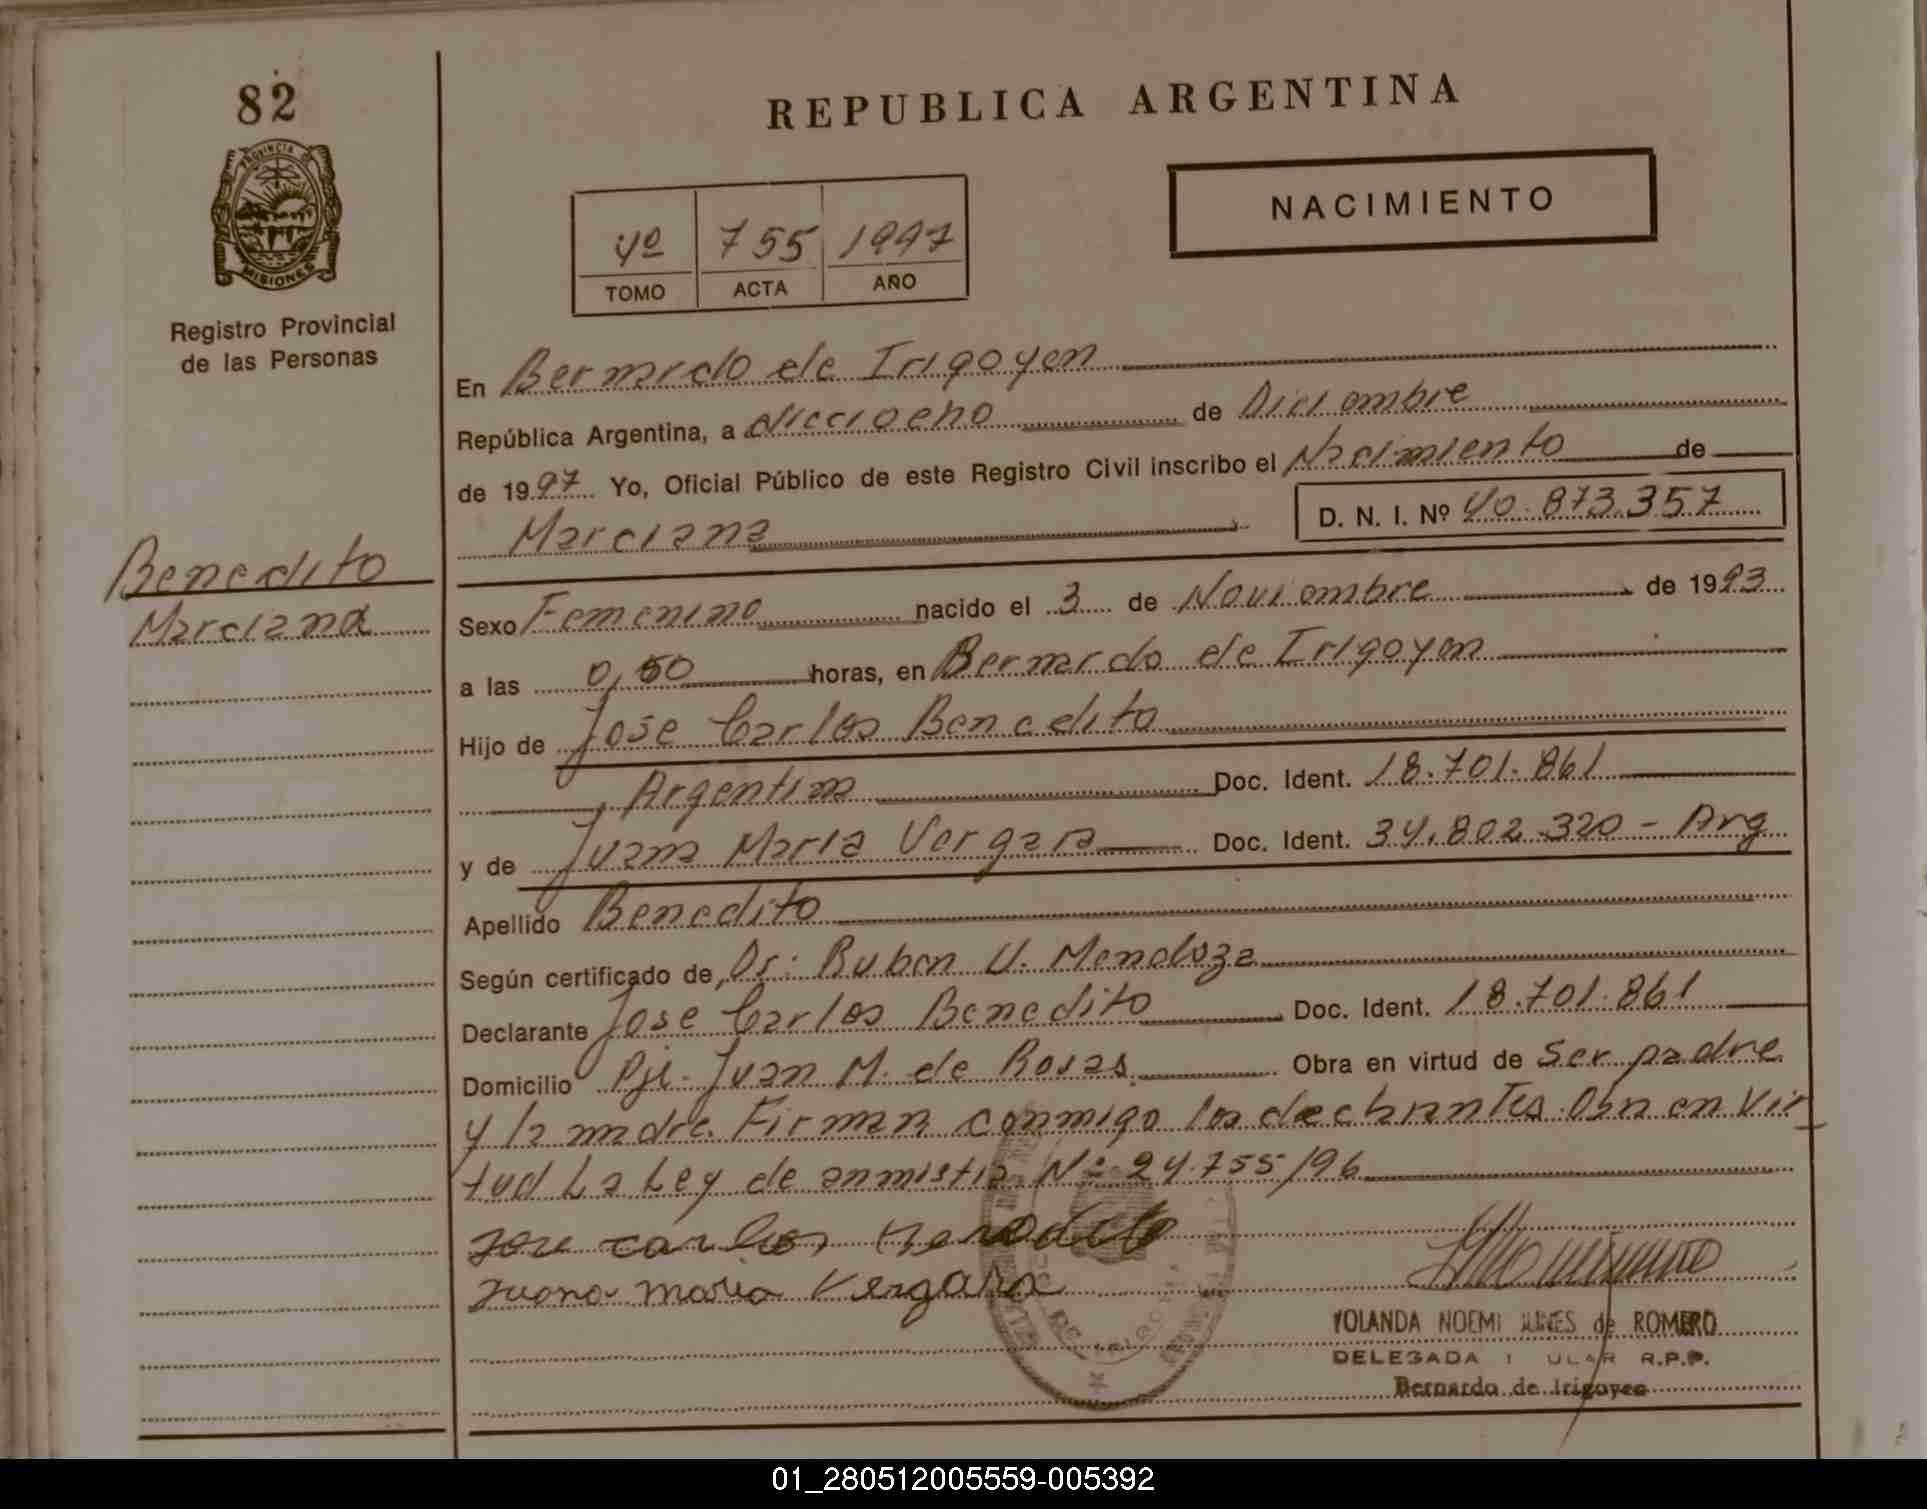 82
REPUBLICA ARGENTINA
PROVINCIA DE
MISIONES
NACIMIENTO
4º 755 1997
TOMO ACTA AÑO
Registro Provincial
de las Personas
En Bernardo de Irigoyen
República Argentina, a dieciocho de Diciembre
de 1997 Yo, Oficial Público de este Registro Civil inscribo el Nacimiento de
Marciana D. N. I. Nº 40.873.357
Benedito
Marciana
Sexo Femenino nacido el 3 de Noviembre de 1993
a las 0,50 horas, en Bernardo de Irigoyen
Hijo de Jose Carlos Benedito
Argentina Doc. Ident. 18.701.861
y de Juana Maria Vergara Doc. Ident. 34.802.320 - Arg
Apellido Benedito
Según certificado de Dr. Ruben U. Mendoza
Declarante Jose Carlos Benedito Doc. Ident. 18.701.861
Domicilio Pje. Juan M. de Rosas Obra en virtud de Ser padre
y la madre. Firman conmigo los declarantes. Obra en vir-
tud La Ley de anmistia Nº 24.755/96
Jose Carlos Benedito
Juana Maria Vergara
YOLANDA NOEMI de ROMERO
DELEGADA R.P.P.
Bernardo de Irigoyen
01_280512005559-005392